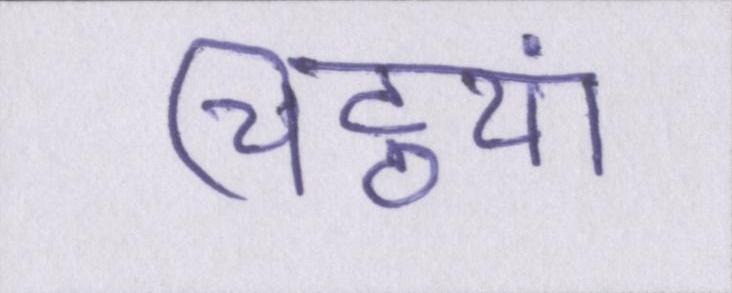 चिट्ठयां